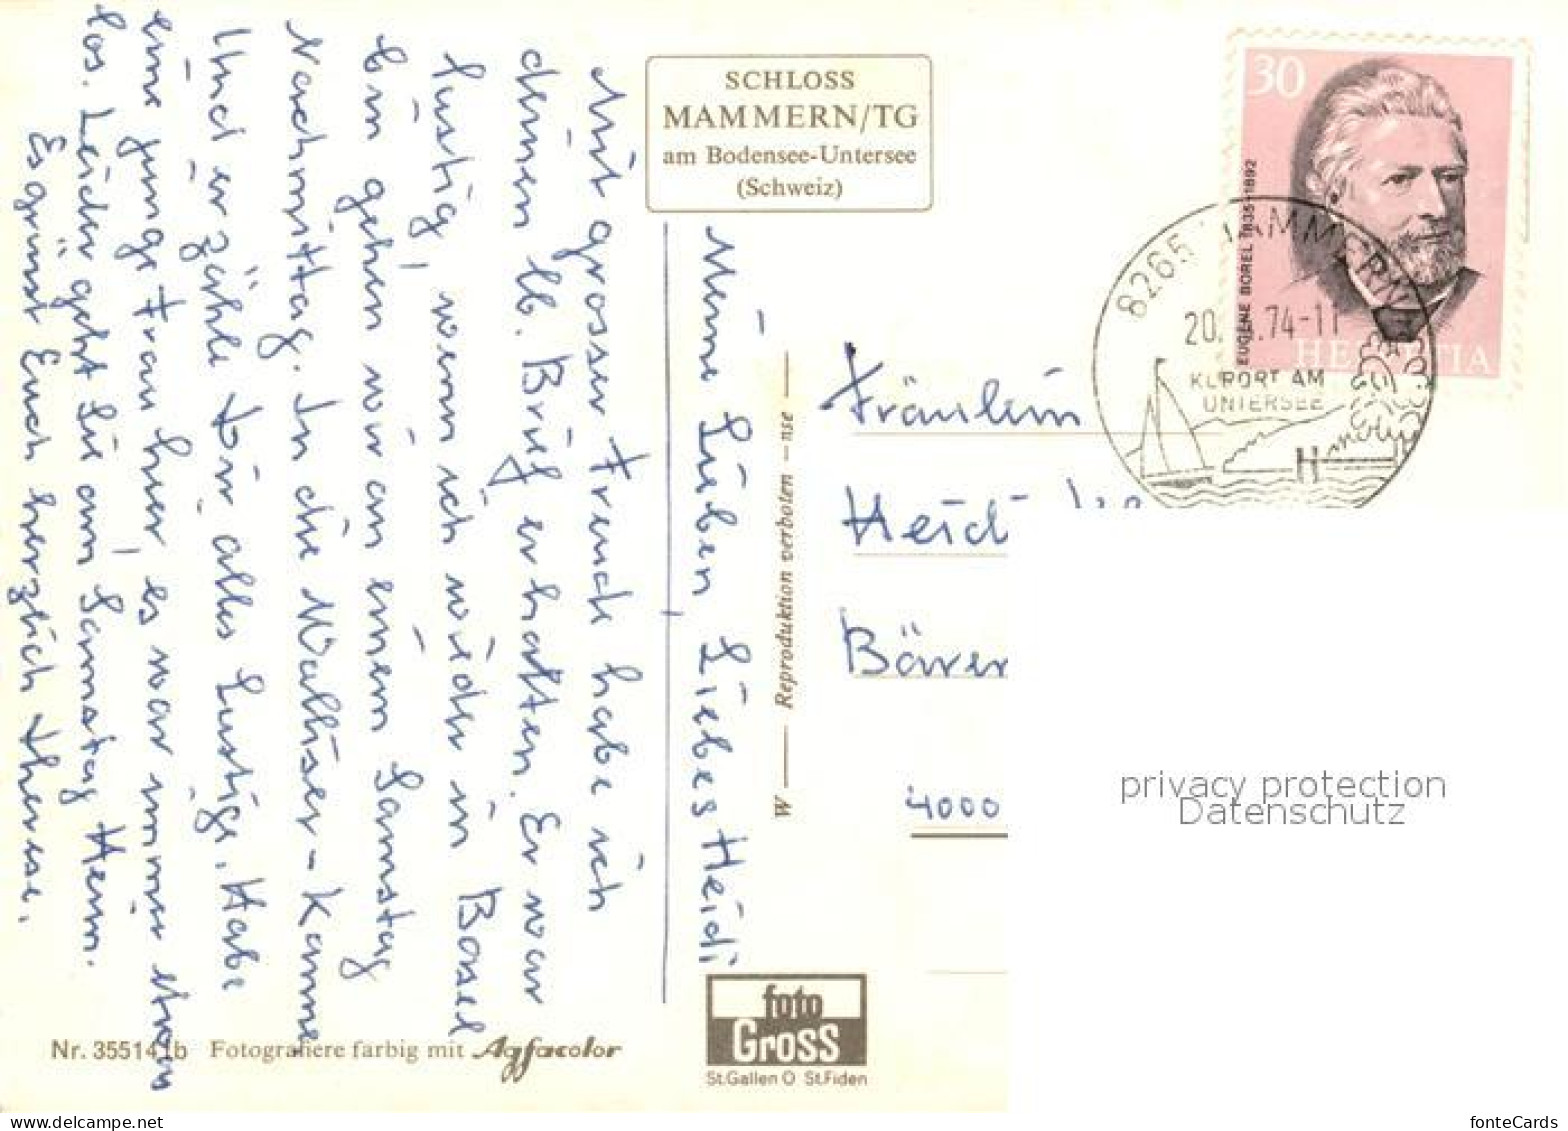 SCHLOSS
MAMMERN/TG
am Bodensee-Untersee
(Schweiz)
30
EUGÈNE BOREL 1835-1892
HELVETIA
8265 MAMMERN
20. .74-11
KURORT AM
UNTERSEE
Meine Lieben Liebes Heidi
Mit grosser Freude habe ich
deinen lb. Brief erhalten. Er war
lustig, wenn ich wieder in Basel
bin gehen wir an einem Samstag
Nachmittag. In die Walliser-Kanne
Und erzähle Dir alles Lustige. Habe
eine junge Frau hier, es war immer etwas
los. Leider geht Sie am Samstag Heim.
Es grüsst Euch herzlich Therese.
W — Reproduktion verboten — nse —
Fräulein
Heidi
4000
privacy protection
Datenschutz
foto
Gross
St.Gallen O St.Fiden
Nr. 355141b Fotografiere farbig mit Agfacolor
fonteCards